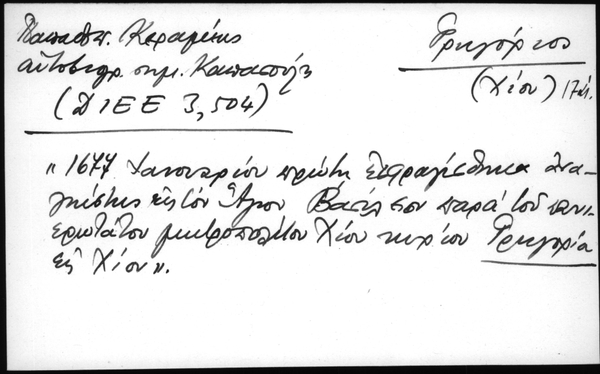 Παπαδοπ. Κεραμέως
αὐτοβιογρ. σημ. Καπασούλη
(ΔΙΕΕ 3,504)
Γρηγόριος
(Χίου) 17 αἰ.
"1677 Ἰανουαρίου πρώτη ἐσφραγίσθηκα ἀνα-
γνώστης εἰς τὸν Ἅγιον Βασίλειον παρὰ τοῦ πανι-
ερωτάτου μητροπολίτου Χίου κυρίου Γρηγορίου
εἰς Χίον".